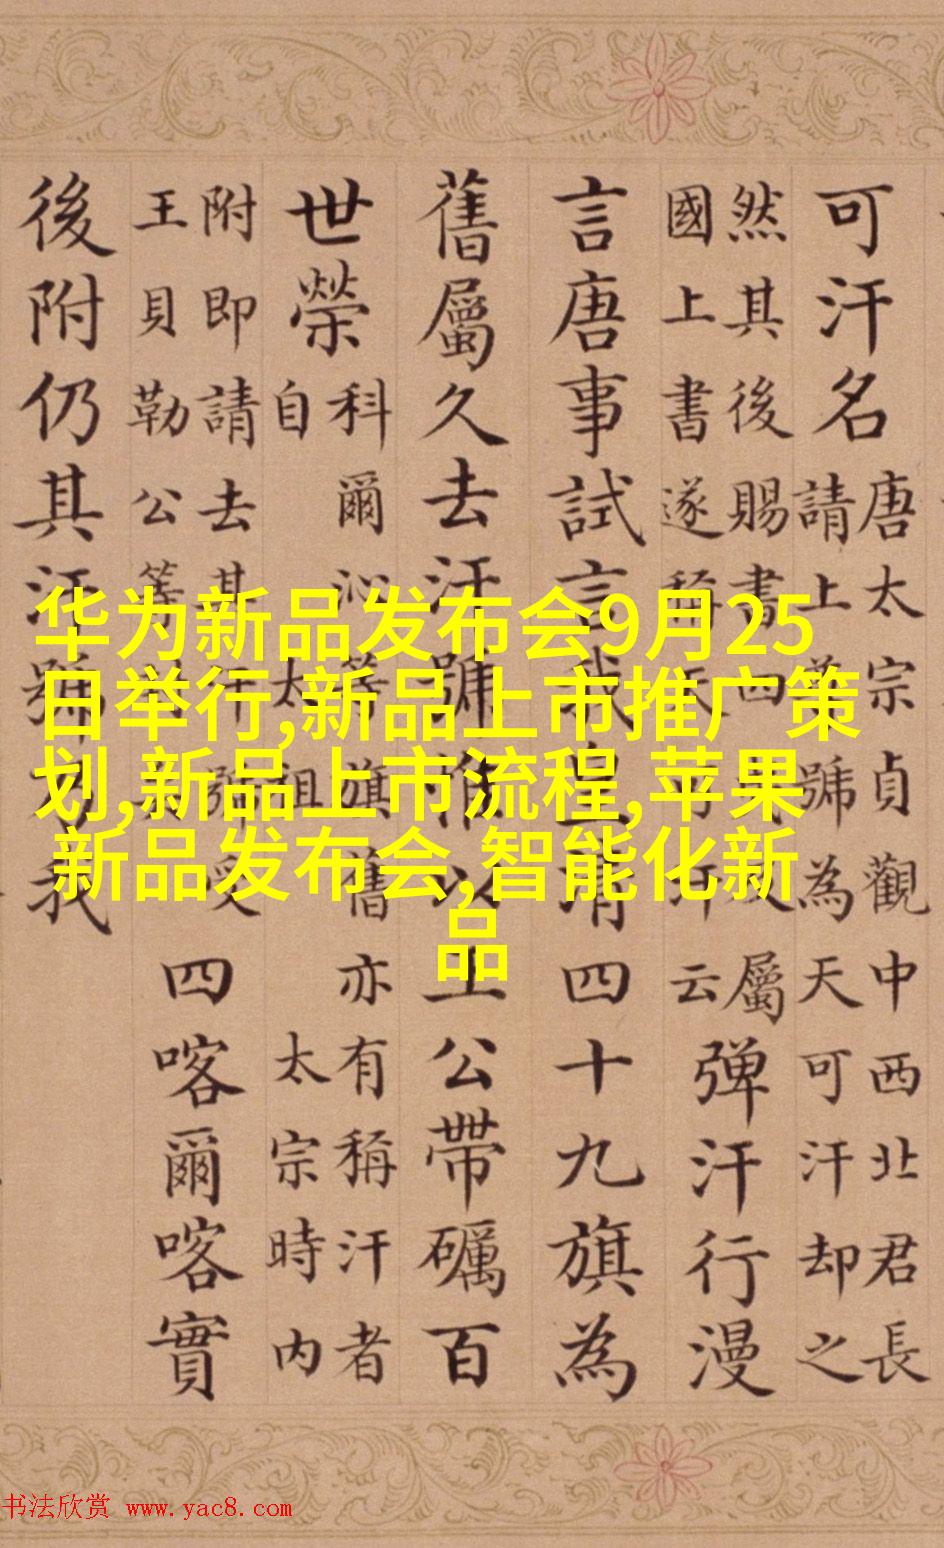 可汗名
唐太宗貞觀中西北君長
請上尊號為天可汗却之
然其後賜書四及屬
國上書遂稱天可汗云
彈汗行漫
言唐事試言我皇清四十九旗為
舊屬久去汗號准以王公帶礪百
世榮
科爾沁等旗舊亦有稱汗者
自太祖太宗時内
附即請去其汗號受
王貝勒公等
四喀爾喀實
後附仍其汗號我
华为新品发布会9月25
日举行,新品上市推广策
划,新品上市流程,苹果
新品发布会,智能化新
品
书法欣赏 www.yac8.com